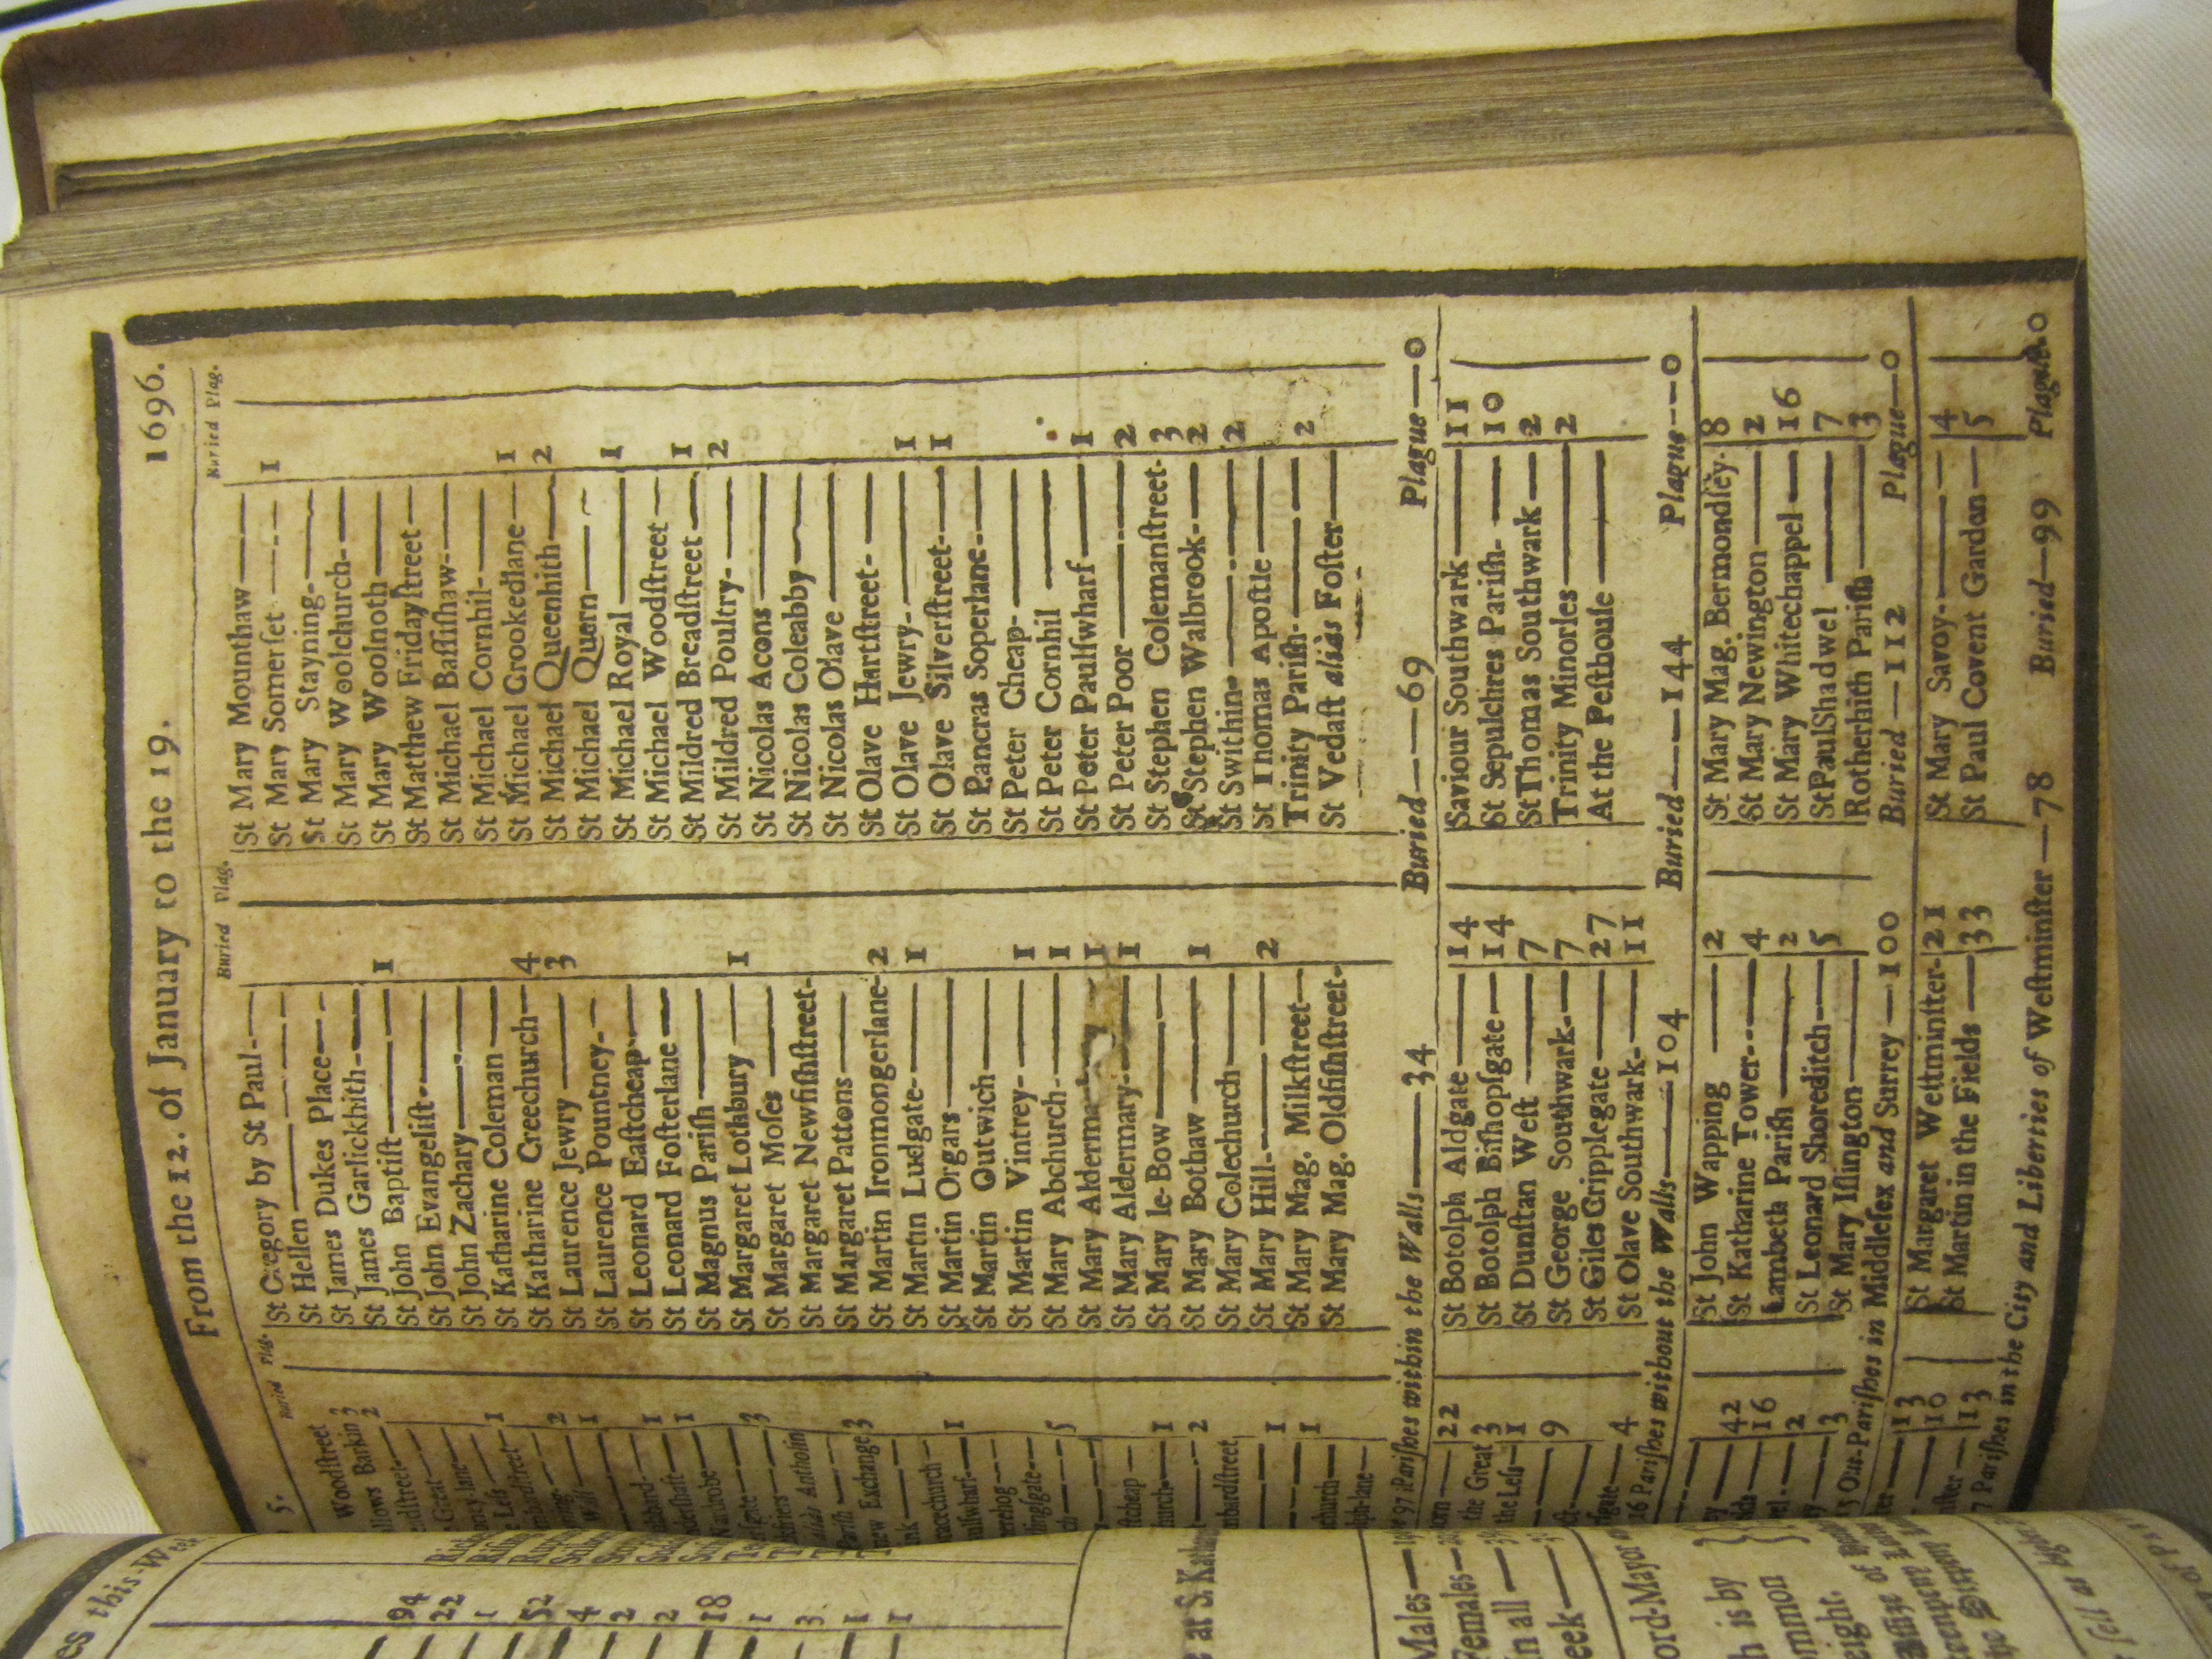 5. From the 12. of January to the 19. 1696.
Buried Plag.
Woodſtreet 3
llows Barkin 2
eadſtreet
Great
bury-lane
e Leſs 1
mbardſtreet
ning 2
Wall 1
bbard 1
derſhaft 1
Wardrobe
3
aliàs Antholin
Pariſh
ew Exchange 3
nk
racechurch
ulſwharf 1
erehog
lingſgate
ch 5
ſtcheap
church 1
2
mbardſtreet
1
1
church
lph-lane
Buried Plag.
St Gregory by St Paul
St Hellen
St James Dukes Place
St James Garlickhith
St John Baptiſt 1
St John Evangeliſt
St John Zachary
St Katharine Coleman
St Katharine Creechurch 4
St Laurence Jewry 3
St Laurence Pountney
St Leonard Eaſtcheap
St Leonard Foſterlane
St Magnus Pariſh
St Margaret Lothbury 1
St Margaret Moſes
St Margaret Newfiſhſtreet
St Margaret Pattons
St Martin Ironmongerlane 2
St Martin Ludgate 1
St Martin Orgars
St Martin Outwich
St Martin Vintrey 1
St Mary Abchurch 1
St Mary Alderma 1
St Mary Aldermary 1
St Mary le Bow
St Mary Bothaw 1
St Mary Colechurch
St Mary Hill 2
St Mary Mag. Milkſtreet
St Mary Mag. Oldfiſhſtreet
Buried Plag.
St Mary Mounthaw
St Mary Somerſet 1
St Mary Stayning
St Mary Woolchurch
St Mary Woolnoth
St Mathew Fridayſtreet
St Michael Baſſiſhaw
St Michael Cornhil
St Michael Crookedlane 1
St Michael Queenhith 2
St Michael Quern
St Michael Royal 1
St Michael Woodſtreet
St Mildred Breadſtreet 1
St Mildred Poultry 2
St Nicolas Acons
St Nicolas Coleabby
St Nicolas Olave
St Olave Hartſtreet
St Olave Jewry 1
St Olave Silverſtreet 1
St Pancras Soperlane
St Peter Cheap
St Peter Cornhil
St Peter Paulſwharf 1
St Peter Poor 2
St Stephen Colemanſtreet 3
St Stephen Walbrook 2
St Swithin 2
St Thomas Apoſtle
Trinity Pariſh 2
St Vedaſt aliàs Foſter
97 Pariſhes within the Walls 34 Buried 69 Plague 0
22
the Great 3
the Leſs 1
9
4
St Botolph Aldgate 14
St Botolph Biſhopſgate 14
St Dunſtan Weſt 7
St George Southwark 7
St Giles Cripplegate 27
St Olave Southwark 11
Saviour Southwark 11
St Sepulchres Pariſh 10
St Thomas Southwark 2
Trinity Minories 2
At the Peſthouſe
16 Pariſhes without the Walls 104 Buried 144 Plague 0
42
16
2
3
St John Wapping 2
St Katharine Tower 4
Lambeth Pariſh 2
St Leonard Shoreditch 5
St Mary Iſlington
St Mary Mag. Bermondſey 8
St Mary Newington 2
St Mary Whitechappel 16
St Paul Shadwel 7
Rotherhith Pariſh 3
Out-Pariſhes in Middleſex and Surrey 100 Buried 112 Plague 0
13
10
13
3
St Margaret Weſtminſter 21
St Martin in the Fields 33
St Mary Savoy 4
St Paul Covent Garden 5
7 Pariſhes in the City and Liberties of Weſtminſter 78 Buried 99 Plague 0
es this Week
94
22
1
52
4
2
2
18
1
3
1
1
at S. Kathar
Males
Females
In all
eek
ord-Mayor
h is by
ommon
eight.